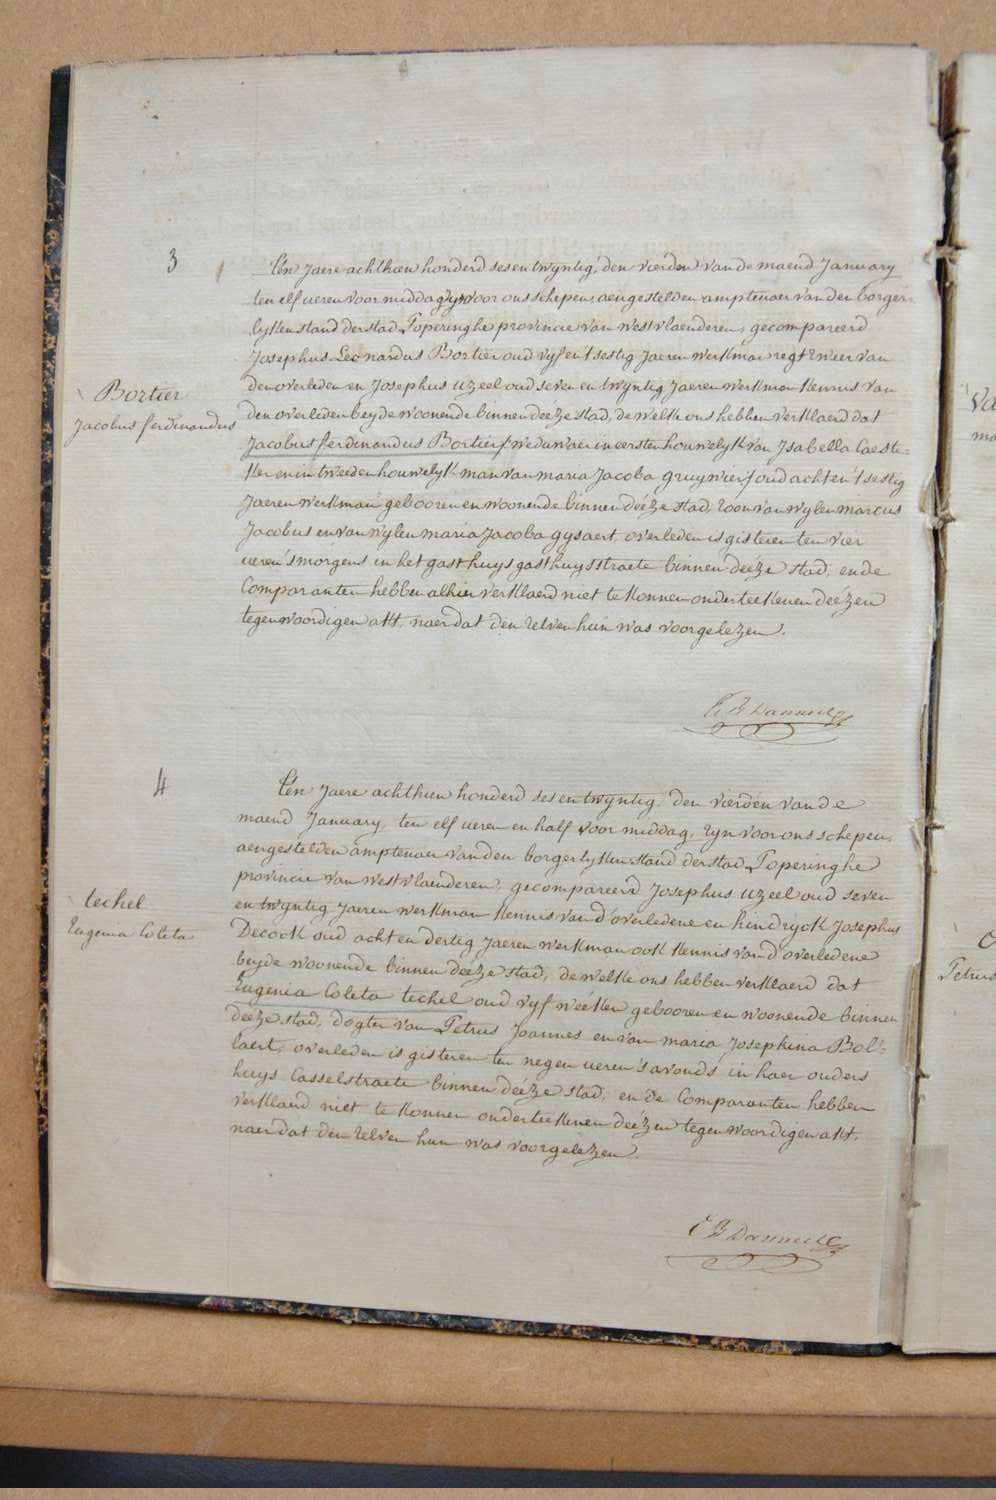 3
Bortier
Jacobus ferdinandus
Een Jaere achthien honderd ses en twyntig, den vierden van de maend January
ten elf ueren voor middag, zyn voor ons schepen, aengestelden amptenaer van den borger-
lyken stand der stad Poperinghe provincie van westvlaenderen, gecompareerd
Josephus Leonardus Bortier oud vyf en 't sestig Jaeren werkman regt zweer van
den overleden en Josephus uzeel oud seven en twyntig Jaeren werkman kennis van
den overleden beyde woonende binnen deéze stad, de welke ons hebben verklaerd dat
Jacobus ferdinandus Bortier / weduwaer in eersten houwelyk van Isabella Caeste-
ker en in tweeden houwelyk man van maria Jacoba gruywier / oud acht en 't sestig
Jaeren werkman gebooren en woonende binnen deéze stad, zoon van wylen marcus
Jacobus en van wylen maria Jacoba gysaert, overleden is gisteren ten vier
ueren 's morgens in het gasthuys gasthuysstraete binnen deéze stad, en de
Comparanten hebben alhier verklaerd niet te konnen onderteekenen deézen
tegenwoordigen akt, naer dat den zelven hun was voorgelezen.
4
techel
Eugenia Coleta
Een Jaere achthien honderd ses en twyntig, den vierden van de
maend January, ten elf ueren en half voor middag, zyn voor ons schepen,
aengestelden amptenaer van den borgerlyken stand der stad Poperinghe
provincie van westvlaenderen, gecompareerd Josephus uzeel oud seven
en twyntig Jaeren werkman kennis van d'overledene en hendryck Josephus
Decock oud acht en dertig Jaeren werkman ook kennis van d'overledene
beyde woonende binnen deéze stad, de welke ons hebben verklaerd dat
Eugenia Coleta techel oud vyf weeken gebooren en woonende binnen
deéze stad, dogter van Petrus Joannes en van maria Josephina Bol-
laert, overleden is gisteren ten negen ueren 's avonds in haer ouders
huys Casselstraete binnen deéze stad, en de Comparanten hebben
verklaerd niet te konnen onderteekenen deézen tegenwoordigen akt,
naer dat den zelven hun was voorgelezen.
Petrus